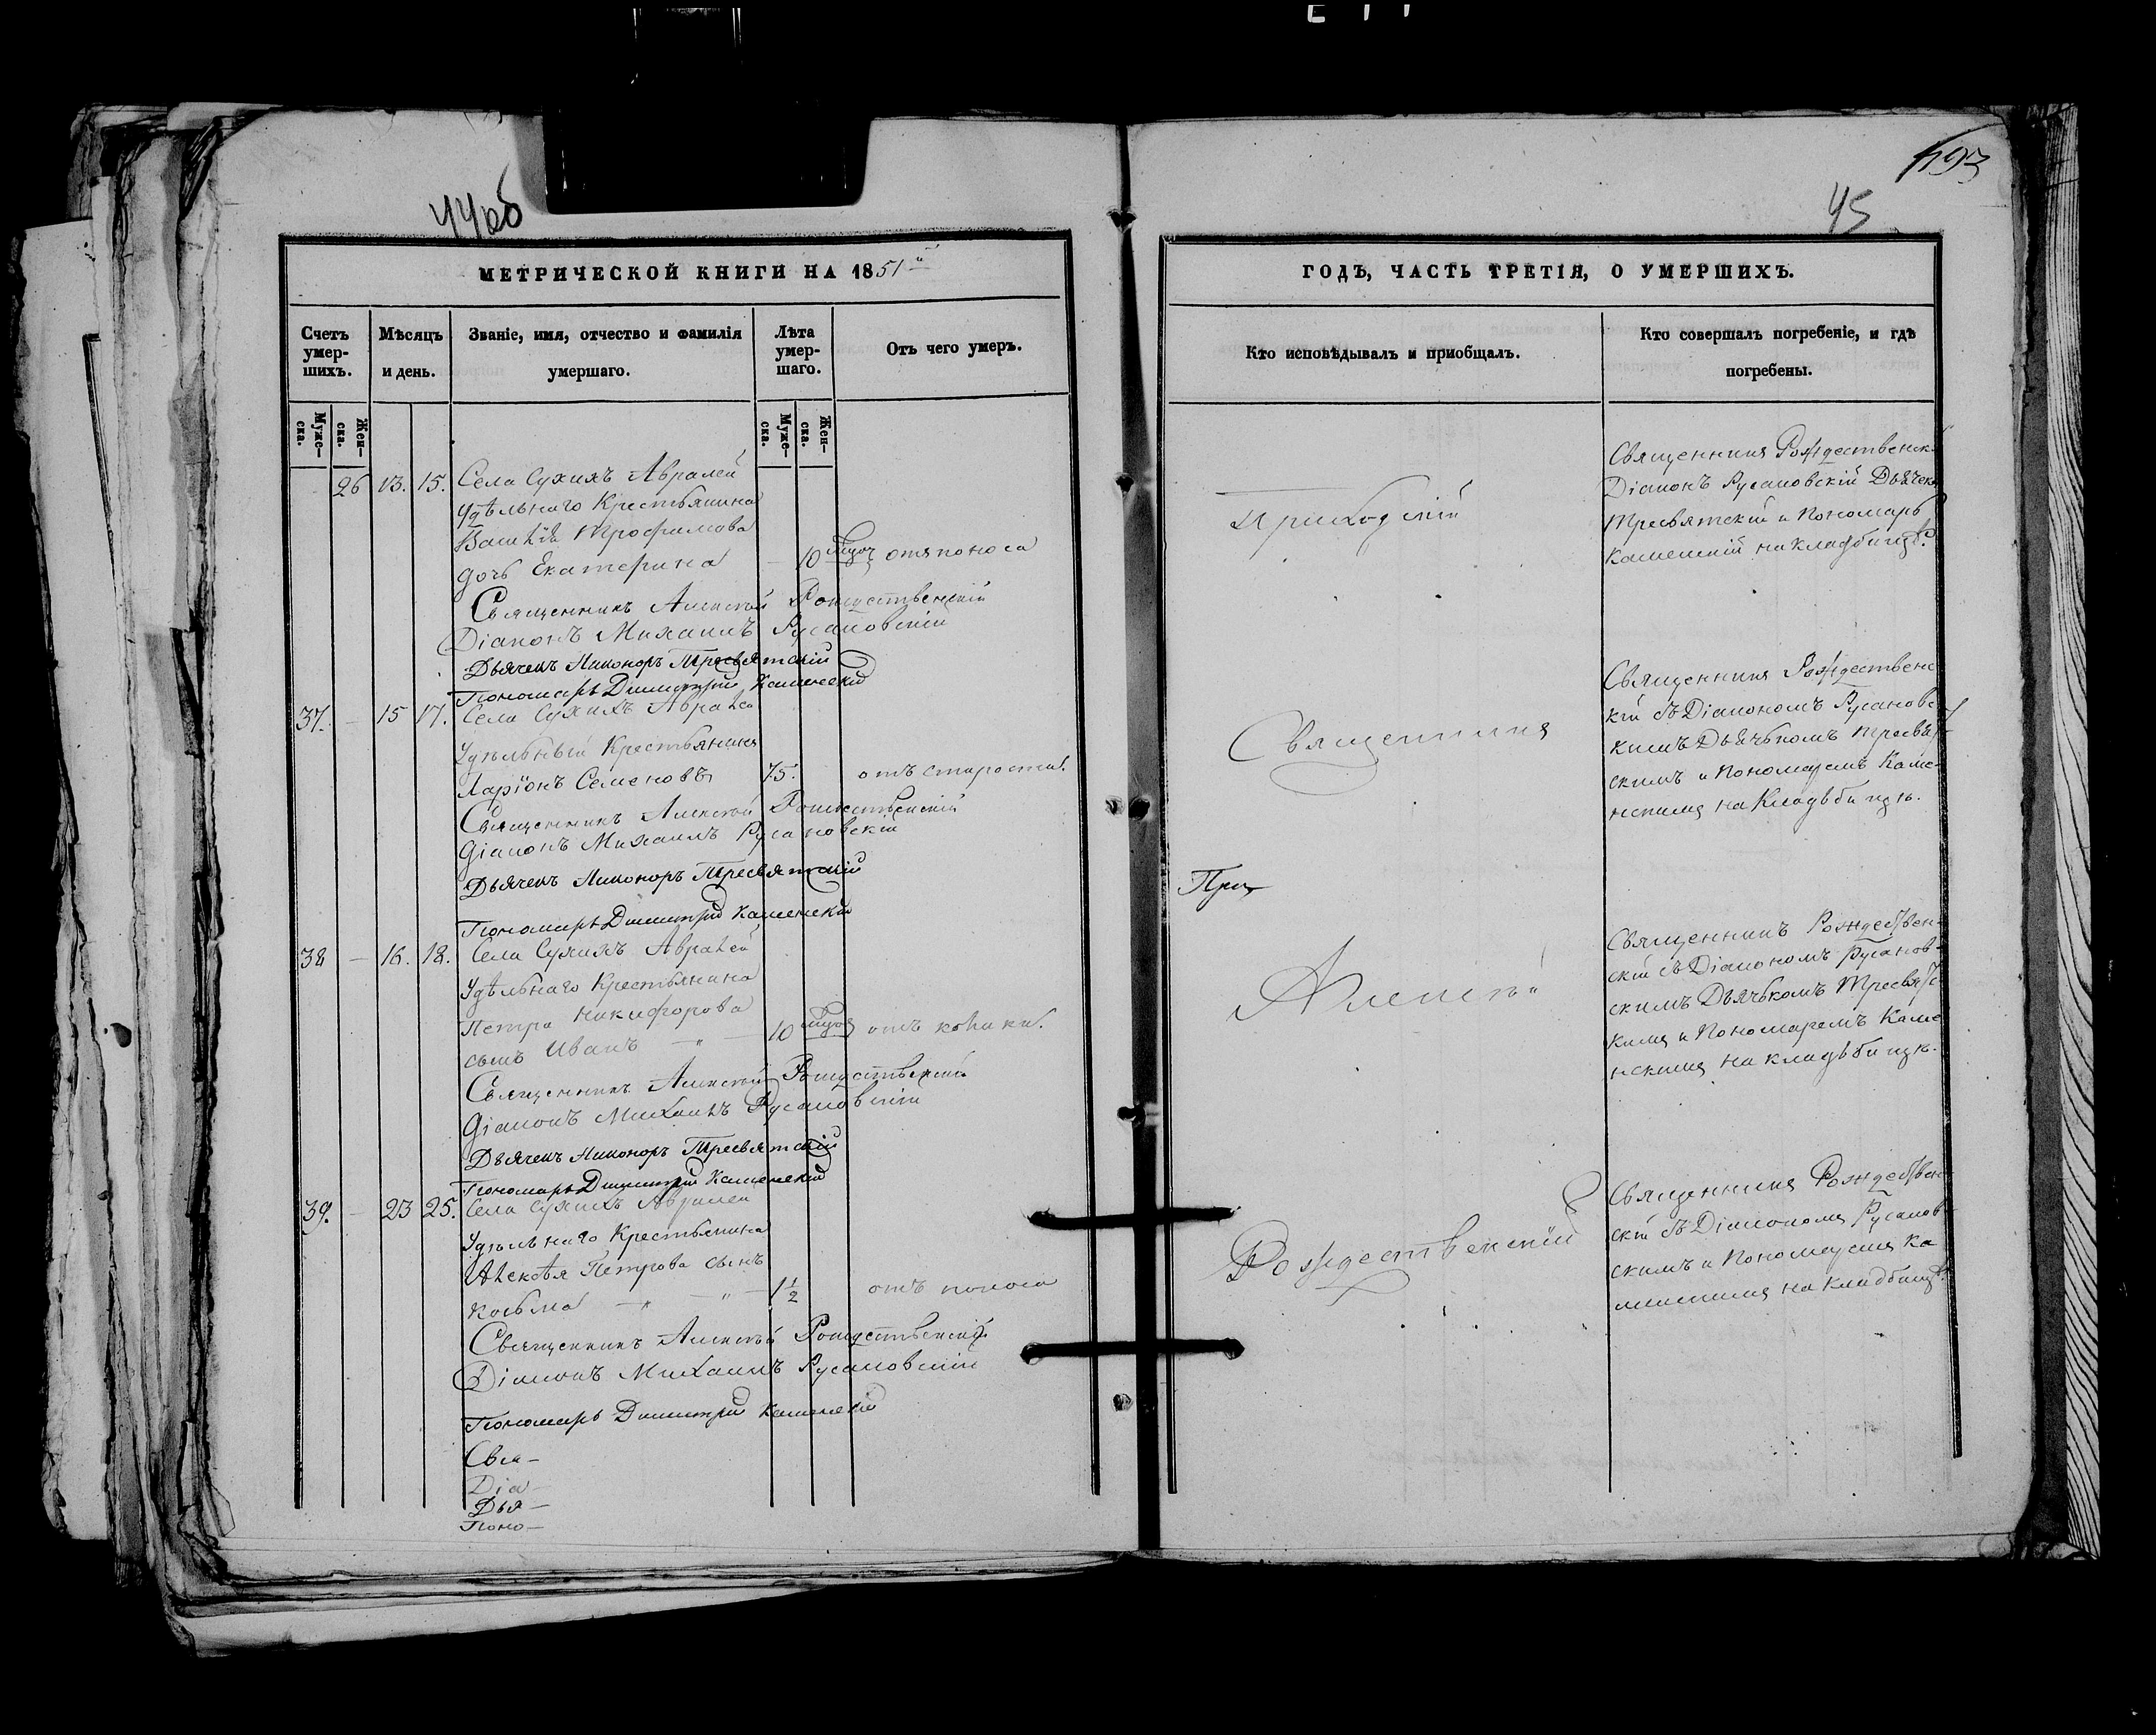 44об
МЕТРИЧЕСКОЙ КНИГИ НА 1851й
Счетъ умер-шихъ.
Мѣсяцъ и день.
Званіе, имя, отчество и фамилія умершаго.
Лѣта умер-шаго.
Отъ чего умеръ.
Муже-ска.
Жен-ска.
Муже-ска.
Жен-ска.
26 13. 15. Села Сухихъ Авралей
Удѣльнаго Крестьянина
Трофимова
дочь Екатерина — 10 отъ поноса
Священникъ Алексѣй Рождественскій
Діаконъ Михаилъ Русановскій
Дьячекъ Никоноръ Тресвятскій
Пономарь Димитрій Каменскій
37. — 15 17. Села Сухихъ Авралей
Удѣльный Крестьянинъ
Ларіонъ Семеновъ 75. отъ старости.
Священникъ Алексѣй Рождественскій
Діаконъ Михаилъ Русановскій
Дьячекъ Никоноръ Тресвятскій
Пономарь Димитрій Каменскій
38 — 16. 18. Села Сухихъ Авралей
Удѣльнаго Крестьянина
Петра Никифорова
сынъ Иванъ — " — 10 отъ
Священникъ Алексѣй Рождественскій
Діаконъ Михаилъ Русановскій
Дьячекъ Никоноръ Тресвятскій
Пономарь Димитрій Каменскій
39. — 23 25. Села Сухихъ Авралей
Удѣльнаго Крестьянина
Петрова сынъ
Косьма — " — " — 1 1/2 отъ поноса
Священникъ Алексѣй Рождественскій
Діаконъ Михаилъ Русановскій
Пономарь Димитрій Каменскій
Свя-
Діа-
Дья-
Поно-
45
ГОДЪ, ЧАСТЬ ТРЕТІЯ, О УМЕРШИХЪ.
Кто исповѣдывалъ и приобщалъ.
Кто совершалъ погребеніе, и гдѣ погребены.
Приходскій
Священникъ
При
Алексѣй
Рождественскій
Священникъ Рождественск.
Діаконъ Русановскій Дьячекъ
Тресвятскій и Пономарь
Каменскій на кладбищѣ.
Священникъ Рождественс
кій съ Діакономъ Русановс
кимъ Дьячькомъ Тресвят
скимъ и Пономаремъ Каме-
нскимъ на Кладьбищѣ.
Священникъ Рождествен-
скій съ Діакономъ Русанов-
скимъ Дьячькомъ Тресвятс
кимъ и Пономаремъ Каме
нскимъ на кладьбищѣ.
Священникъ Рождествен
скій съ Діакономъ Русанов
скимъ и Пономаремъ Ка
менскимъ на кладбищѣ.